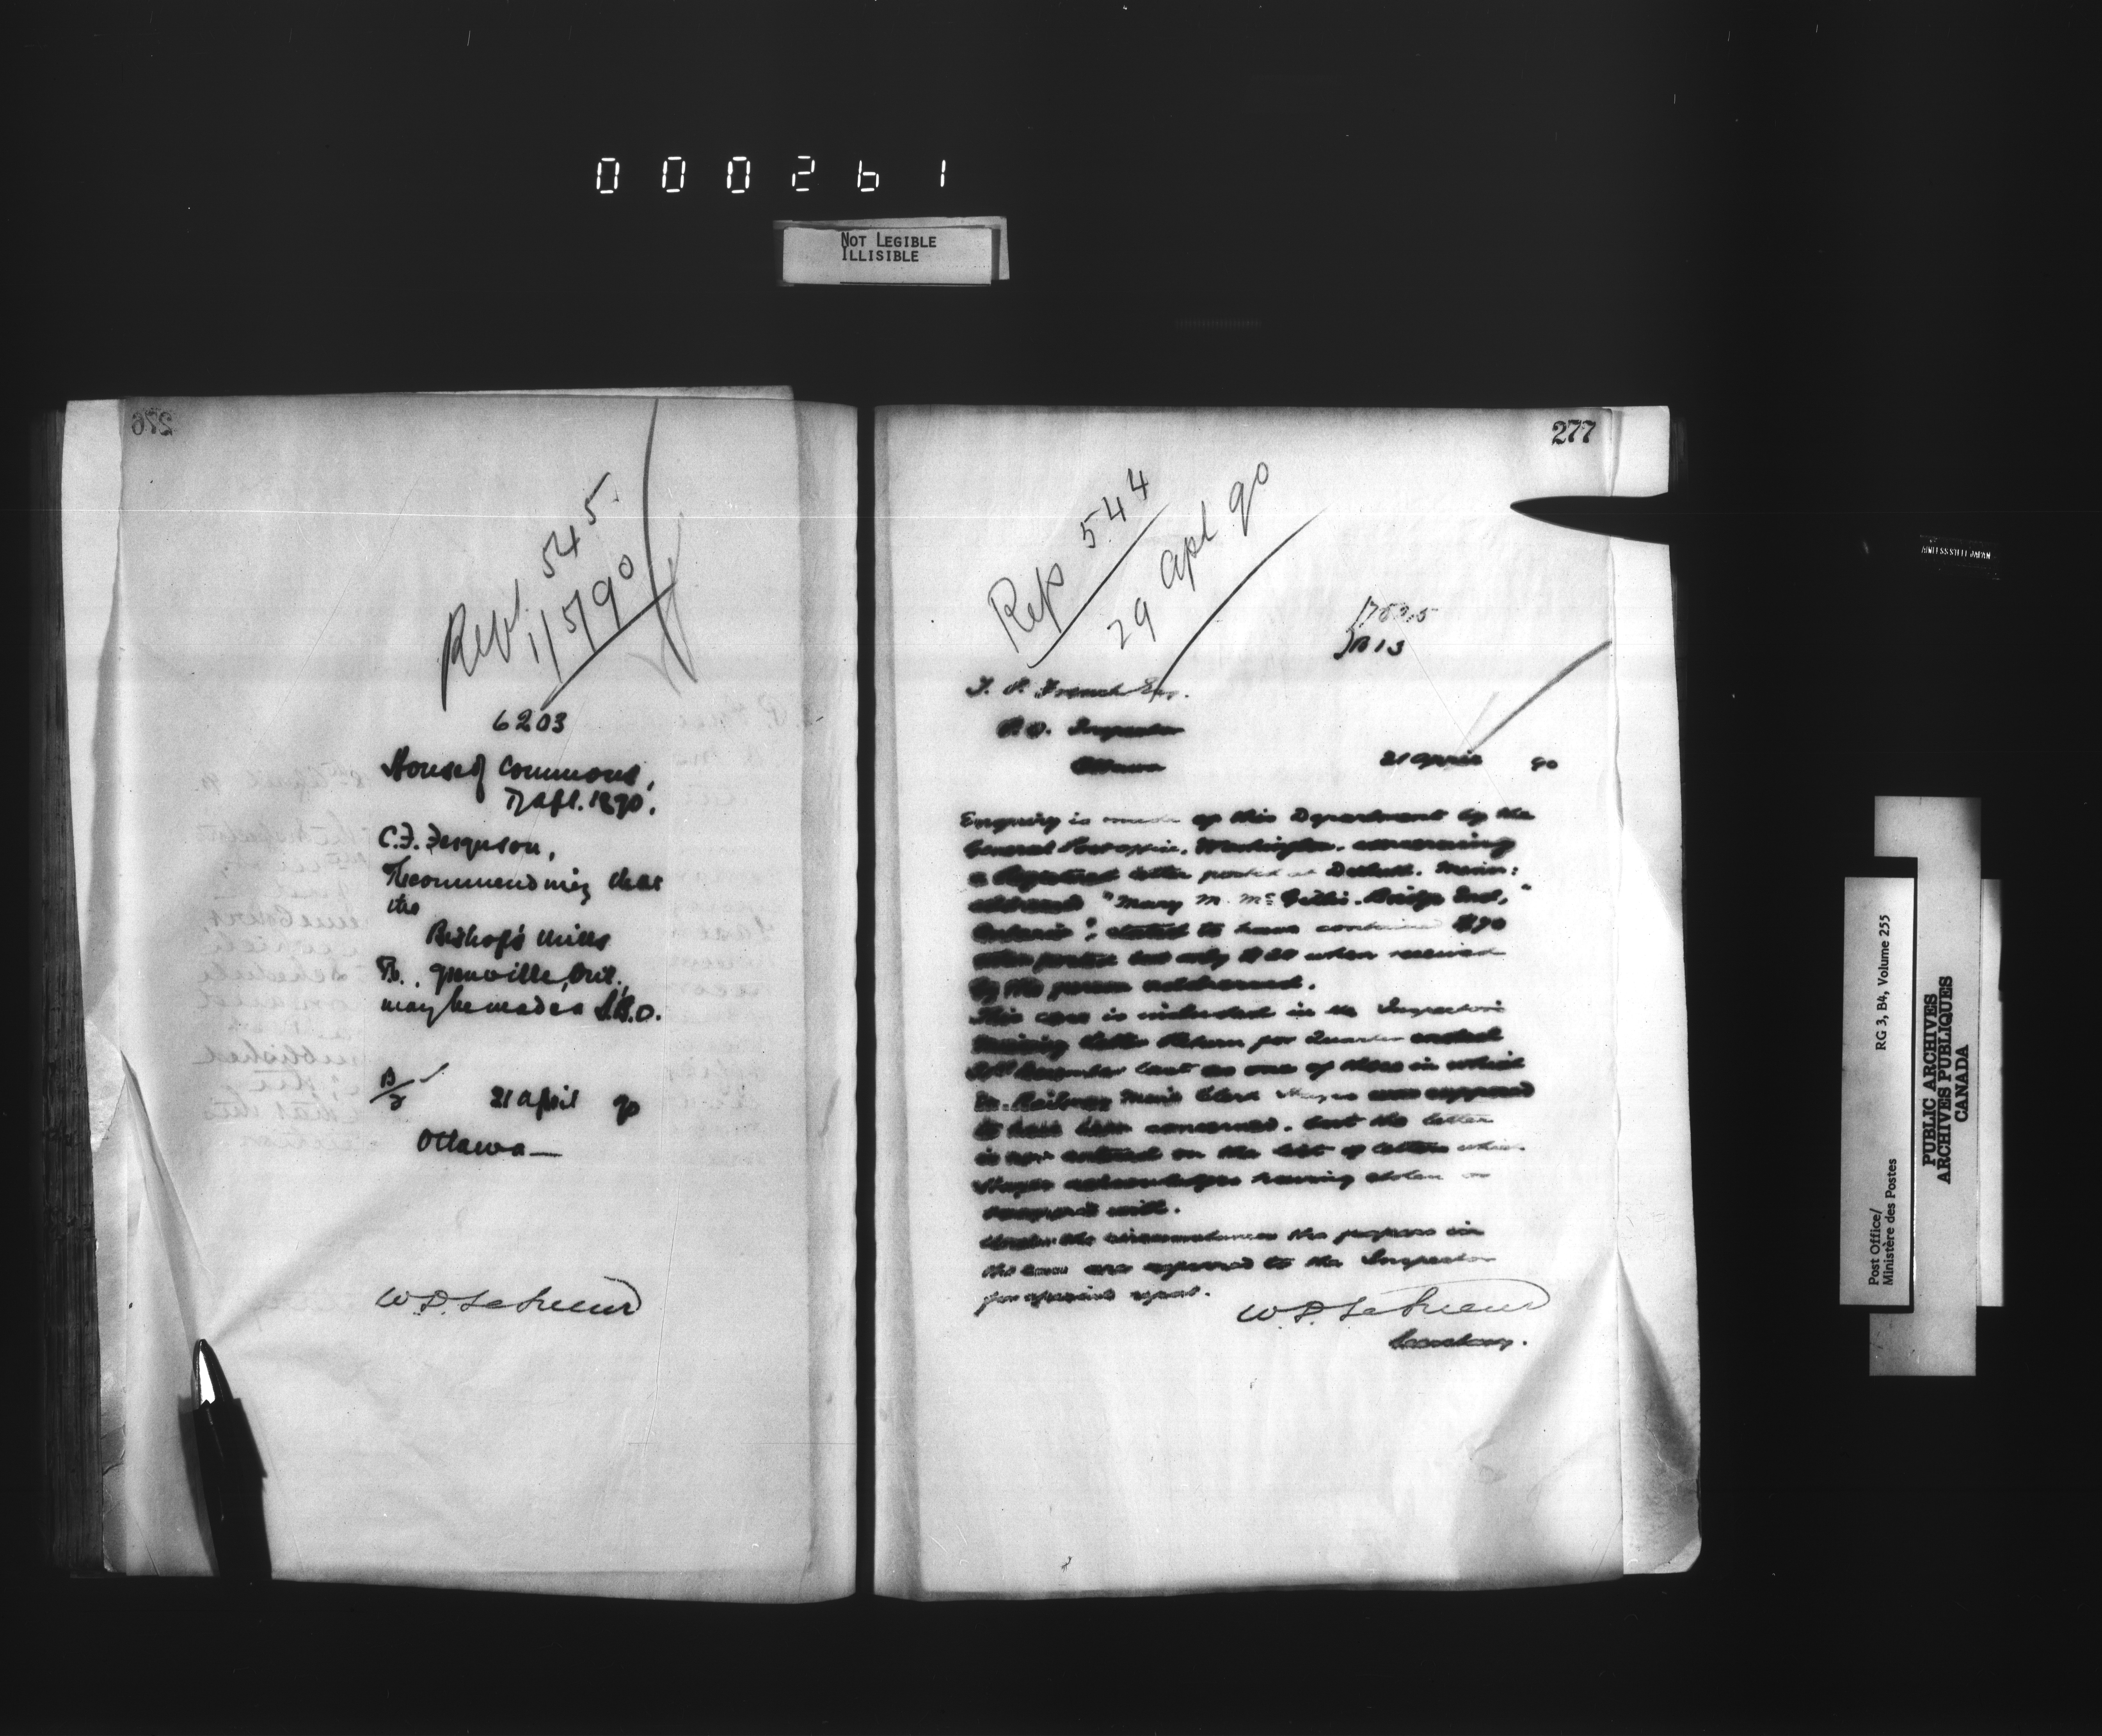 000261
NOT LEGIBLE
ILLISIBLE
276
545
1/5/90
6203
House of Commons,
17 Apl. 1890.
C.F. Ferguson,
Recommending that
the
Bishop's Mills
Grenville, Ont.,
may be made a S.B.O.
B/3
21 April 90
Ottawa
W. D. LeSueur
277
Rep 544
29 apl 90
B 13
T. P. French Esq.
P.O. Inspector
Ottawa
21 April 90
Enquiry is made of this Department by the
General Post office, Washington, concerning
a Registered letter posted at Duluth, Minn:
addressed "Mary M. McGillis, Bridge End,
Ontario", stated to have contained $70
when posted but only $20 when received
by the person addressed.
This case is included in the Inspector's
missing letter Return for Quarter ended
31st December last as one of those in which
Ex-Railway Mail Clerk was supposed
to have been concerned, but the letter
is not entered on the list of letters which
acknowledges having stolen or
tampered with.
Under the circumstances the papers in
the case are referred to the Inspector
for special report.
W. D. LeSueur
Secretary.
STAINLESS STEEL JAPAN
Post Office/
Ministère des Postes
RG 3, B4, Volume 255
PUBLIC ARCHIVES
ARCHIVES PUBLIQUES
CANADA